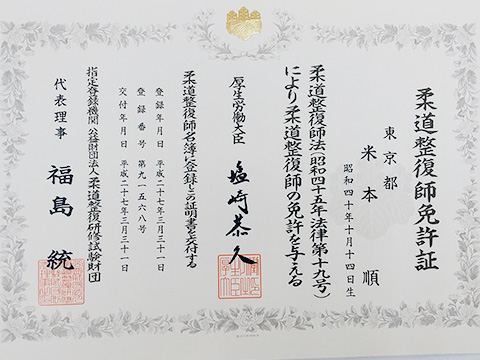 柔道整復師免許証
東京都
米本 順
昭和四十年十月十四日生
柔道整復師法(昭和四十五年法律第十九号)
により柔道整復師の免許を与える
厚生労働大臣 塩崎恭久
柔道整復師名簿に登録しこの証明書を交付する
登録年月日 平成二十七年三月三十一日
登録番号 第九一五六八号
交付年月日 平成二十七年三月三十一日
指定登録機関 公益財団法人柔道整復研修試験財団
代表理事 福島 統